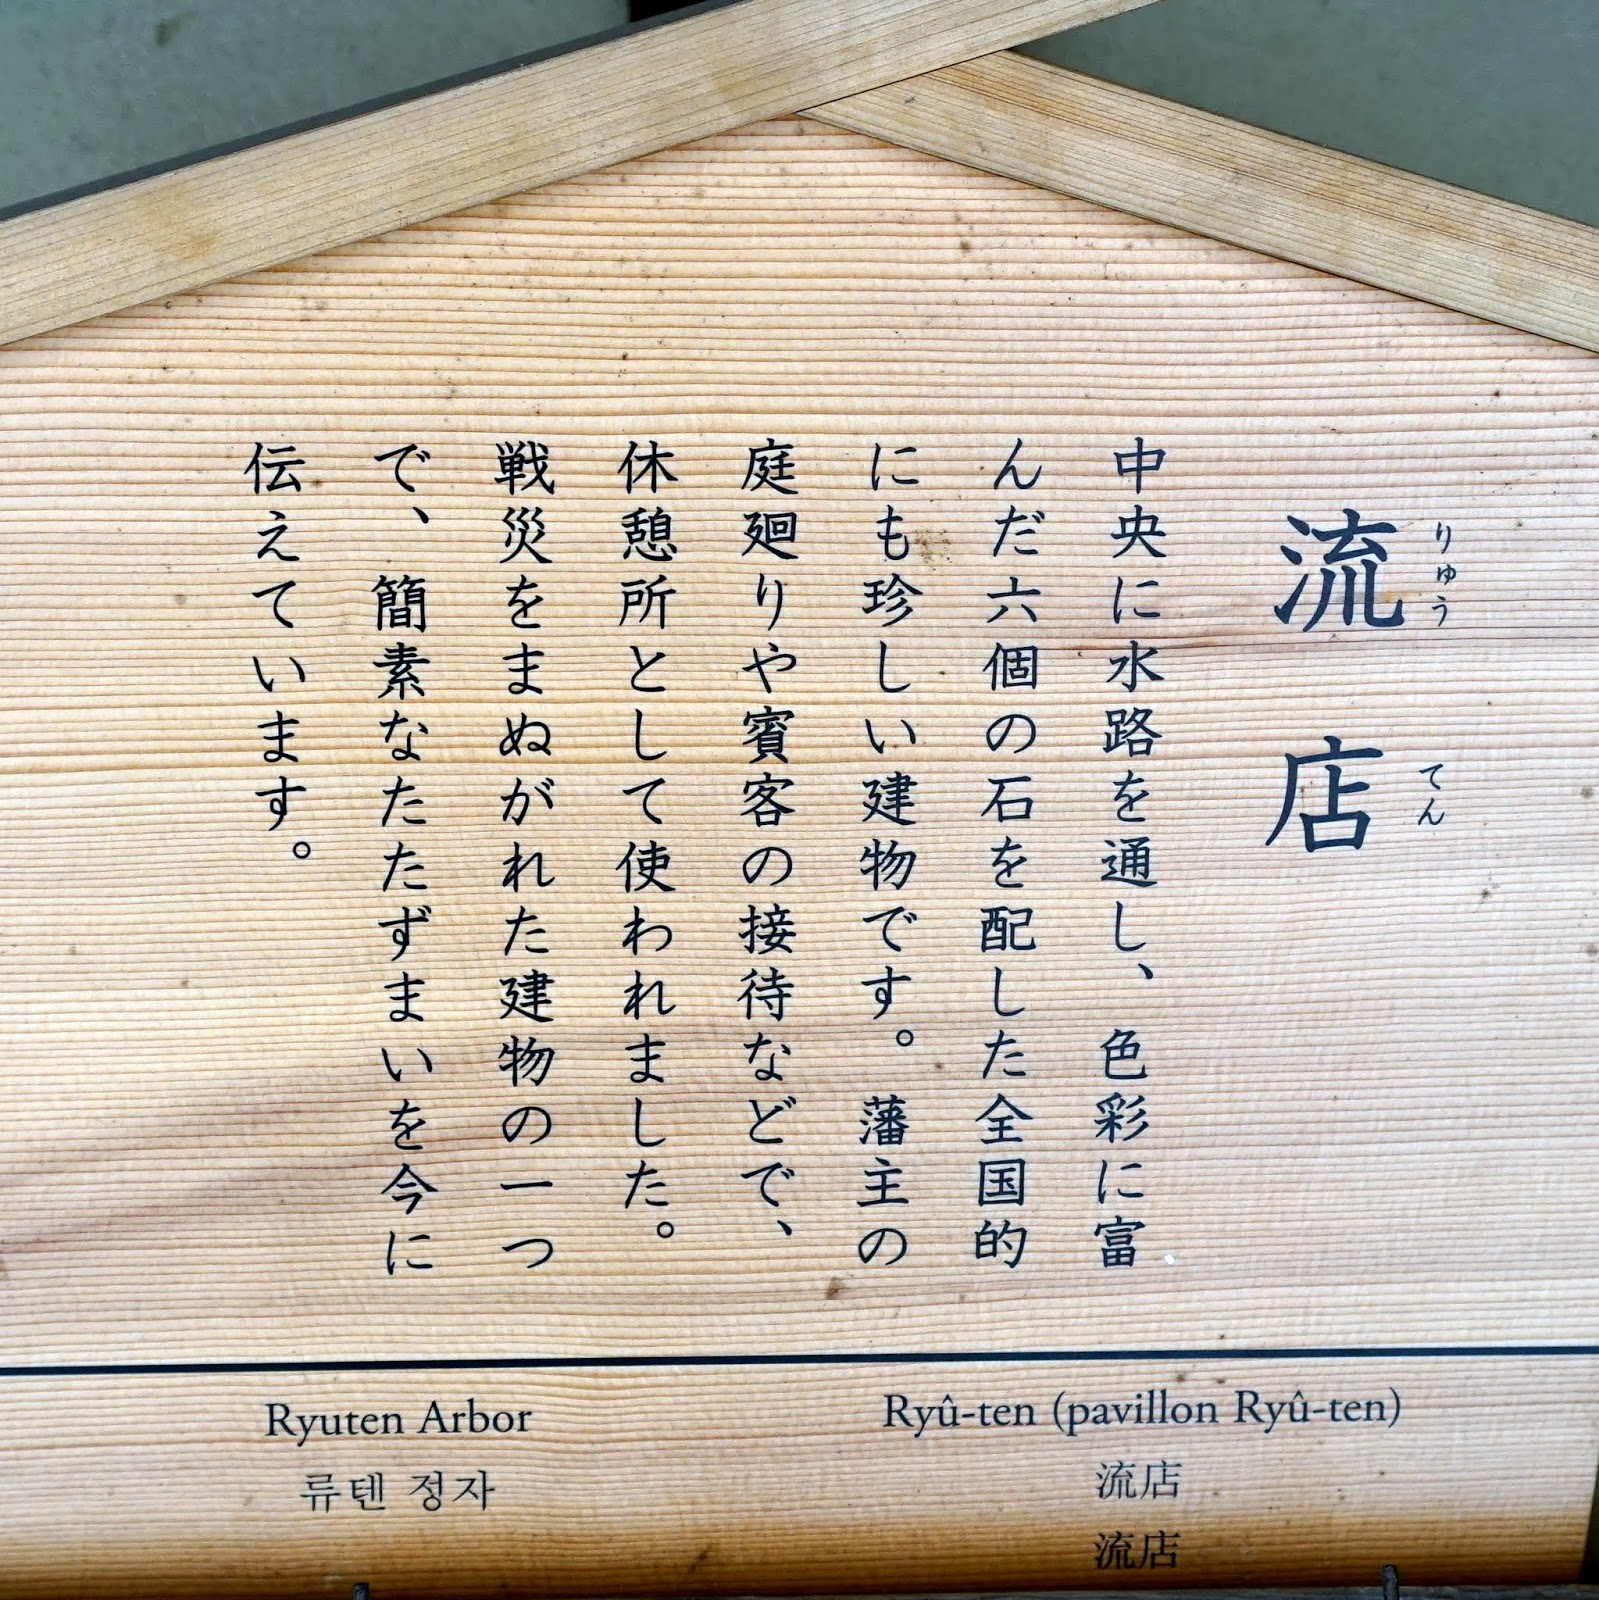 流店
りゅうてん
中央に水路を通し、色彩に富
んだ六個の石を配した全国的
にも珍しい建物です。藩主の
庭廻りや賓客の接待などで、
休憩所として使われました。
戦災をまぬがれた建物の一つ
で、簡素なたたずまいを今に
伝えています。
Ryuten Arbor
류텐 정자
Ryû-ten (pavillon Ryû-ten)
流店
流店